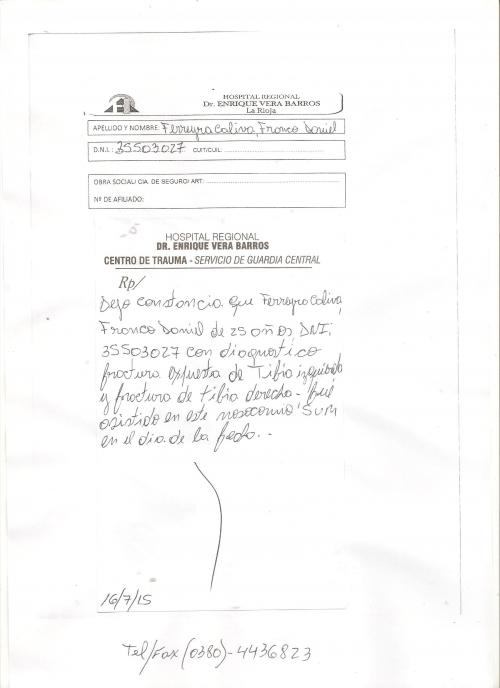 HOSPITAL REGIONAL
Dr. ENRIQUE VERA BARROS
La Rioja
APELLIDO Y NOMBRE: Ferreyra Caliva, Franco Daniel
D.N.I.: 35503027 CUIT/CUIL:
OBRA SOCIAL/ CIA. DE SEGURO/ ART:
Nº DE AFILIADO:
HOSPITAL REGIONAL
DR. ENRIQUE VERA BARROS
CENTRO DE TRAUMA - SERVICIO DE GUARDIA CENTRAL
Rp/
Dejo constancia que Ferreyra Caliva,
Franco Daniel de 25 años DNI.
35503027 con diagnostico
fractura expuesta de Tibia izquierda
y fractura de tibia derecha - fué
asistido en este nosocomio
en el dia de la fecha.-
16/7/15
Tel/Fax (0380)-4436823